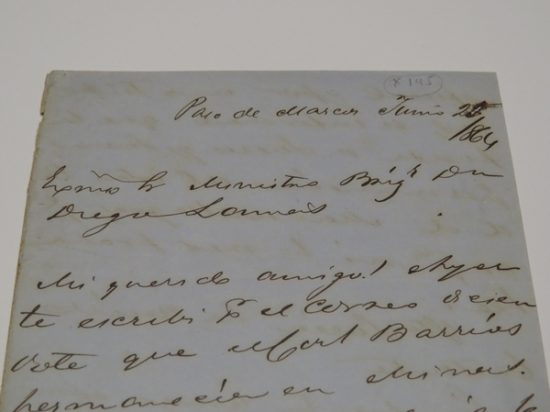 x 145
Paso de Marcos Junio 25
1864
Exmo Sr Ministro Brigr Dn
Diego Lamas
Mi querido amigo! Ayer
te escribi Pr el Correo dicien
dote que Mort Barrios
permanecia en Minas.